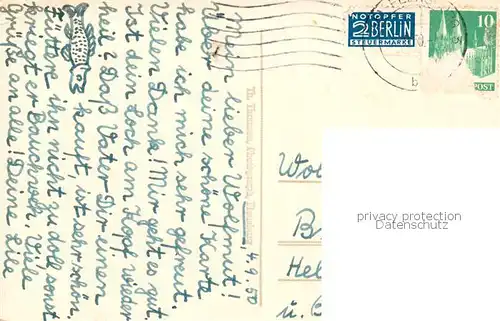 4.9.50
Mein lieber Wolfmut!
Über deine schöne Karte
habe ich mich sehr gefreut.
Vielen Dank! Mir geht es gut.
Ist dein Loch am Kopf wieder
heil? Daß Vater Dir einen
kauft, ist sehr schön.
Füttere ihn nicht zu doll sonst
kriegt er Bauchweh. Viele
Grüße an alle! Deine Lile
NOTOPFER
2 BERLIN
STEUERMARKE
10
POST
b
Hel
u.
privacy protection
Datenschutz